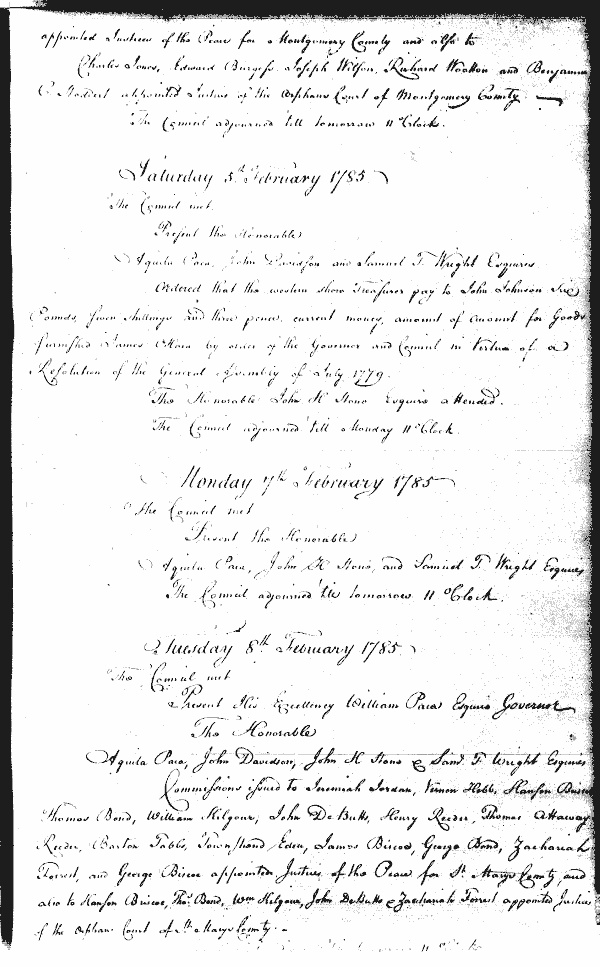 appointed Justices of the Peace for Montgomery County and also to
Charles Jones, Edward Burgess, Joseph Wilson, Richard Wootton and Benjamin
appointed Justices of the Orphans Court of Montgomery County.
The Council adjourned till tomorrow 11 oClock.
Saturday 5th February 1785
The Council met
Present the Honorable
Aquila Paca, John Davidson and Samuel T. Wright Esquires
Ordered that the western shore Treasurer pay to John Johnson Six
Pounds, seven shillings and three pence, current money, amount of account for Goods
furnished James by order of the Governor and Council in Virtue of a
Resolution of the General Assembly of July 1779.
The Honorable John H Stone Esquire attended.
The Council adjourned till Monday 11 oClock.
Monday 7th February 1785
The Council met
Present the Honorable
Aquila Paca, John H Stone, and Samuel T. Wright Esquires
The Council adjourned till tomorrow 11 oClock.
Tuesday 8th February 1785
The Council met
Present His Excellency William Paca Esquire Governor
The Honorable
Aquila Paca, John Davidson, John H Stone & Saml T Wright Esquires
Commissions issued to Jeremiah Jordan, Vernon Hebb, Hanson Briscoe
Thomas Bond, William Kilgour, John De Butts, Henry Reeder, Thomas Attaway
Reeder, Barton Tabbs, Townshend Eden, James Biscoe, George Bond, Zachariah
Forrest, and George Biscoe appointed Justices of the Peace for St Marys County, and
also to Hanson Briscoe, Thos Bond, Wm Kilgour, John DeButts & Zachariah Forrest appointed Justices
of the Orphans Court of St Marys County.